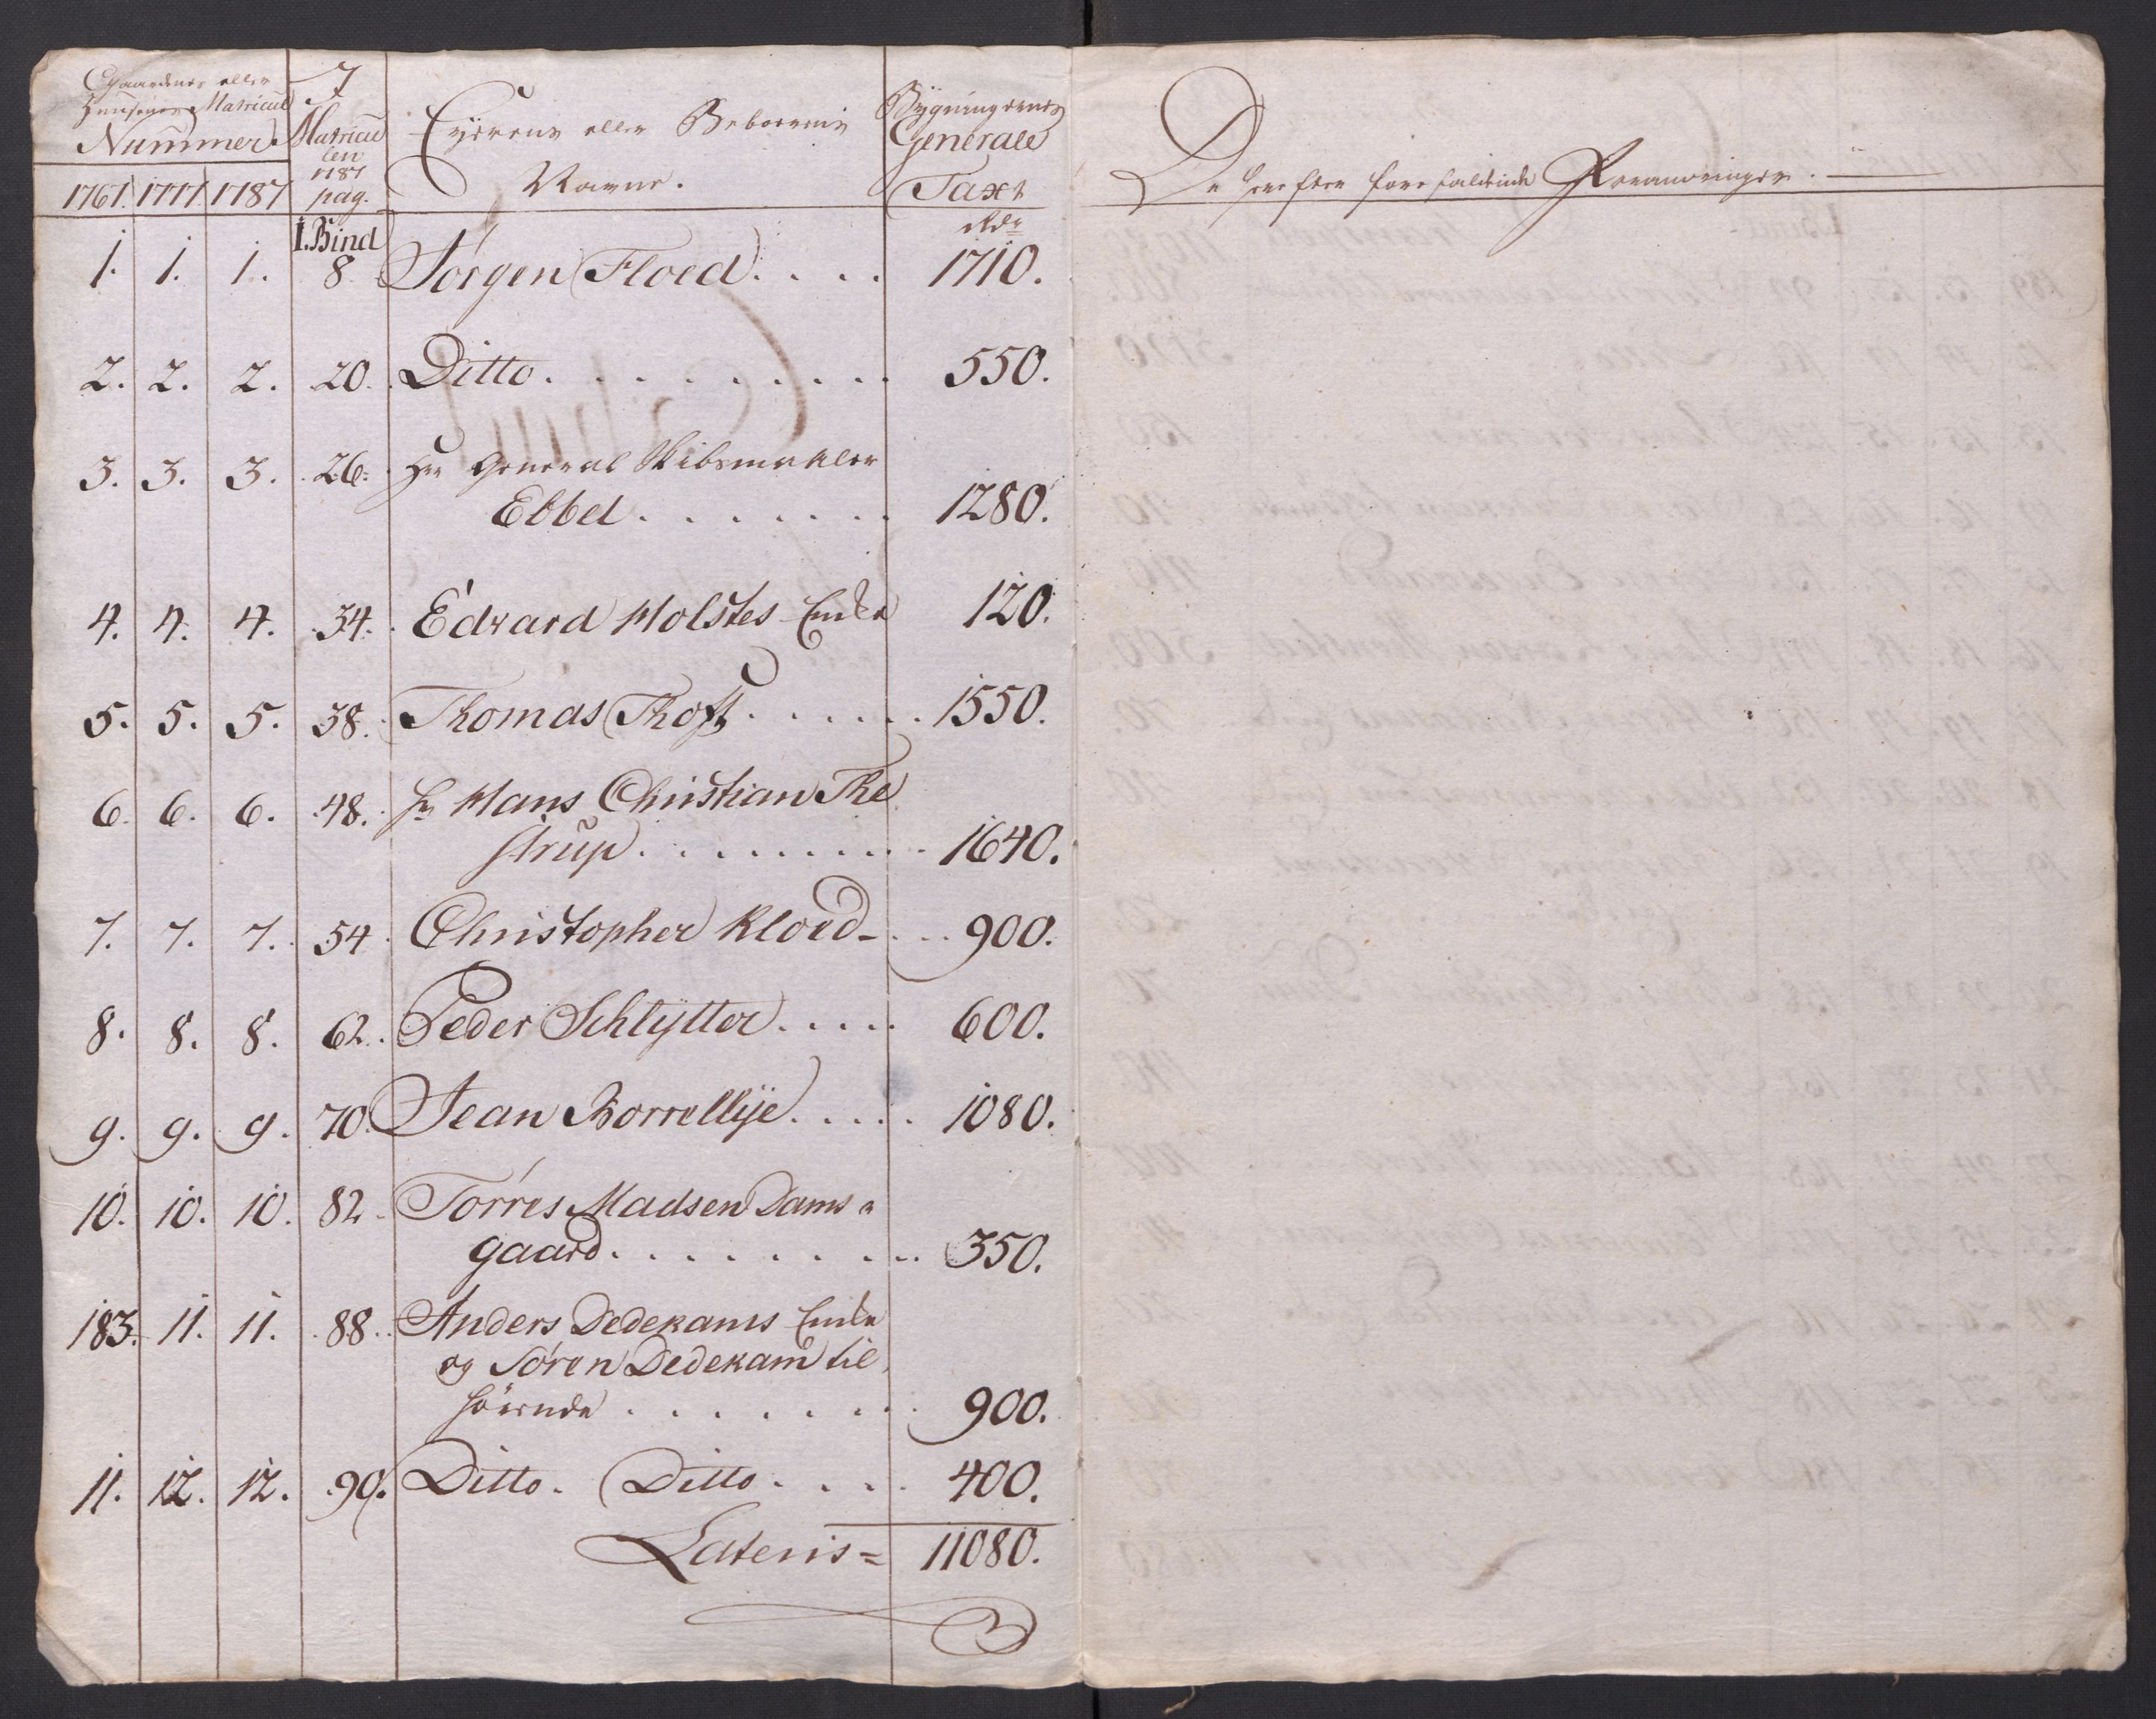 Gaardenes eller
Huusenes Matricul
Nummer.
1767. 1777. 1787
I
Matricu
len
1787
pag.
Eÿerens eller Beboerens
Navne.
Bÿgningernes
Generale
Taxt
De herefter forefaldende Forandringer.
I. Bind
Rdr
1. 1. 1. 8. Jørgen Floed . . . . 1710.
2. 2. 2. 20. Ditto. . . . . . . . . 550.
3. 3. 3. 26. Hr General Skibsmaaler
Ebbel . . . . . . . 1280.
4. 4. 4. 34. Edvard Holstes Enke 120.
5. 5. 5. 38. Thomas Thoft . . . . . . 1550.
6. 6. 6. 48. Hr Hans Christian The
strup . . . . . . . . . 1640.
7. 7. 7. 54 Christopher Kloed - . . . 900.
8. 8. 8. 62. Peder Schlÿtter . . . . . 600.
9. 9. 9. 70. Jean Borrellÿe . . . . . 1080.
10. 10. 10. 82 Torres Madsen Dams =
gaard . . . . . . . . . 350.
183. 11. 11. 88. Anders Dedekams Enke
og Søren Dedekam til
hørende . . . . . . . 900.
11. 12. 12. 90. Ditto. Ditto . . . . 400.
Lateris = 11080.